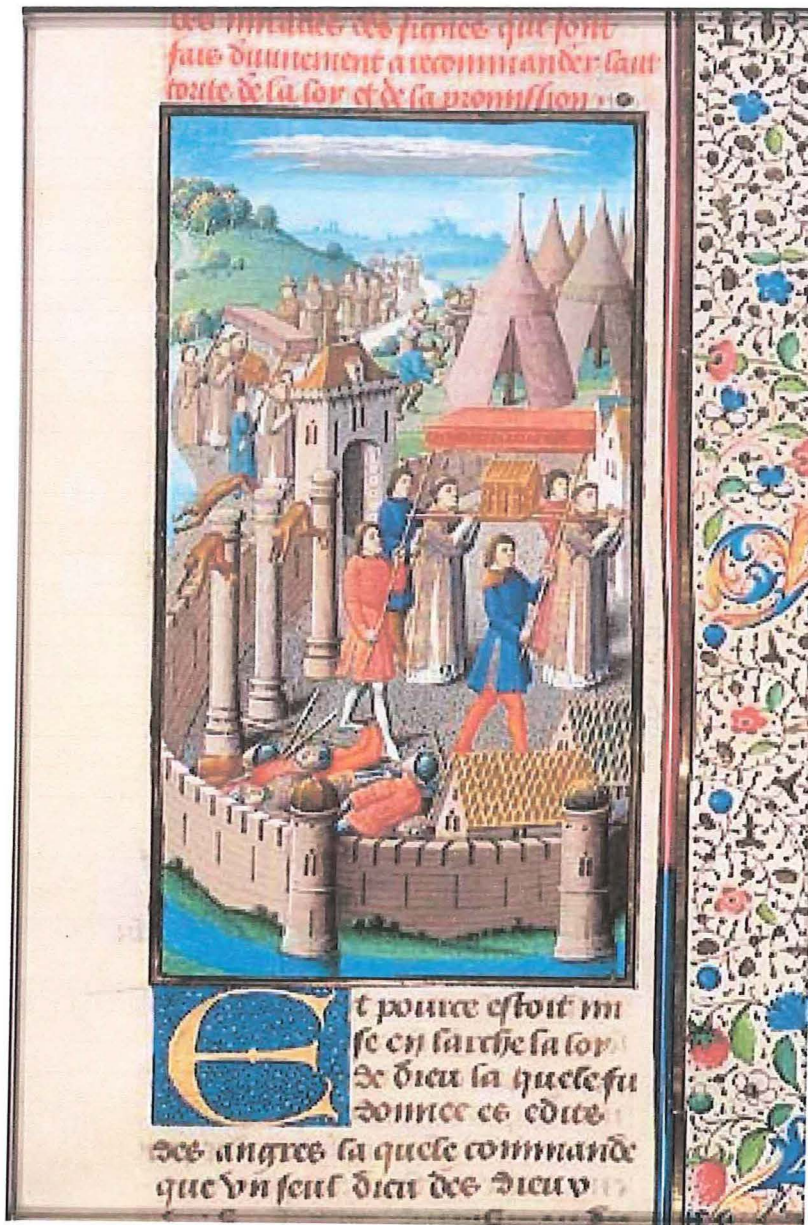 des miracles des signes que sont
fais divinement a recommander lauc
torite de la loy et de la promission
Et pource estoit mi
se en larche la loy
de dieu la quele fu
donnee es edits
des angres la quele commande
que vn seul dieu des dieux